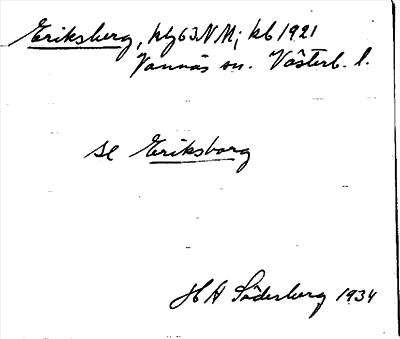 Eriksberg, kbg63NM; kb 1921
Vännäs sn. Västerb. l.
se Eriksborg
H A Söderberg 1934